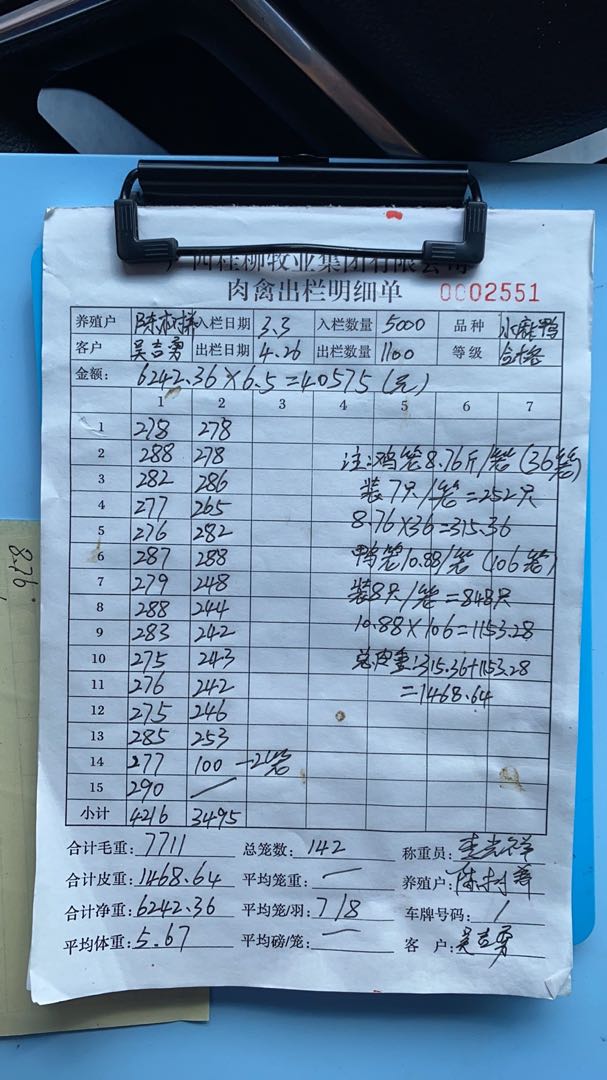 广西桂柳牧业集团有限公司
肉禽出栏明细单 0002551
养殖户 入栏日期 3.3 入栏数量 5000 品种 小麻鸭
客户 吴吉勇 出栏日期 4.26 出栏数量 1100 等级 合格
金额: 6242.36×6.5=40575(元)
1 2 3 4 5 6 7
1 278 278
2 288 278 注:鸡笼8.76斤/笼(36笼)
3 282 286 装7只/笼=252只
4 277 265 8.76×36=315.36
5 276 282
6 287 288 鸭笼10.88/笼(106笼)
7 279 248 装8只/笼=848只
8 288 244
9 283 242 10.88×106=1153.28
10 275 243 总皮重:315.36+1153.28
11 276 242 =1468.64
12 275 246
13 285 253
14 277 100 —2笼
15 290 —
小计 4216 3495
合计毛重: 7711 总笼数: 142 称重员:
合计皮重: 1468.64 平均笼重: — 养殖户:
合计净重: 6242.36 平均笼/羽: 7/8 车牌号码: /
平均体重: 5.67 平均磅/笼: — 客户: 吴吉勇
8.76